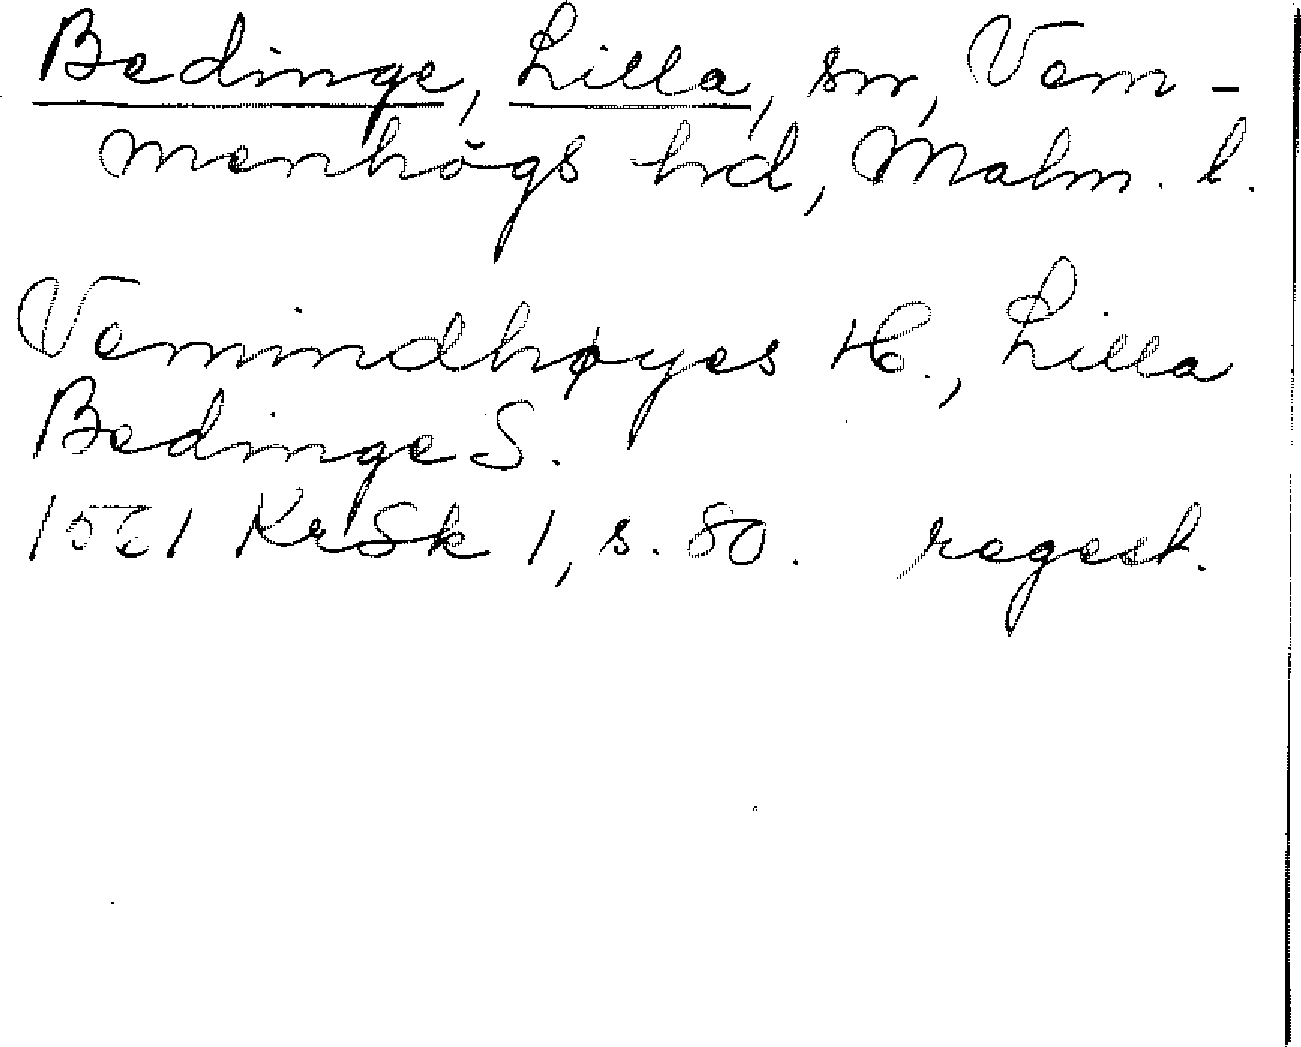 Bedinge, Lilla, sn, Vem-
menhögs hd, Malm. l.
Vemindhøyes H., Lilla
Bedinge S.
1561 KrSk 1, s. 80. regest.